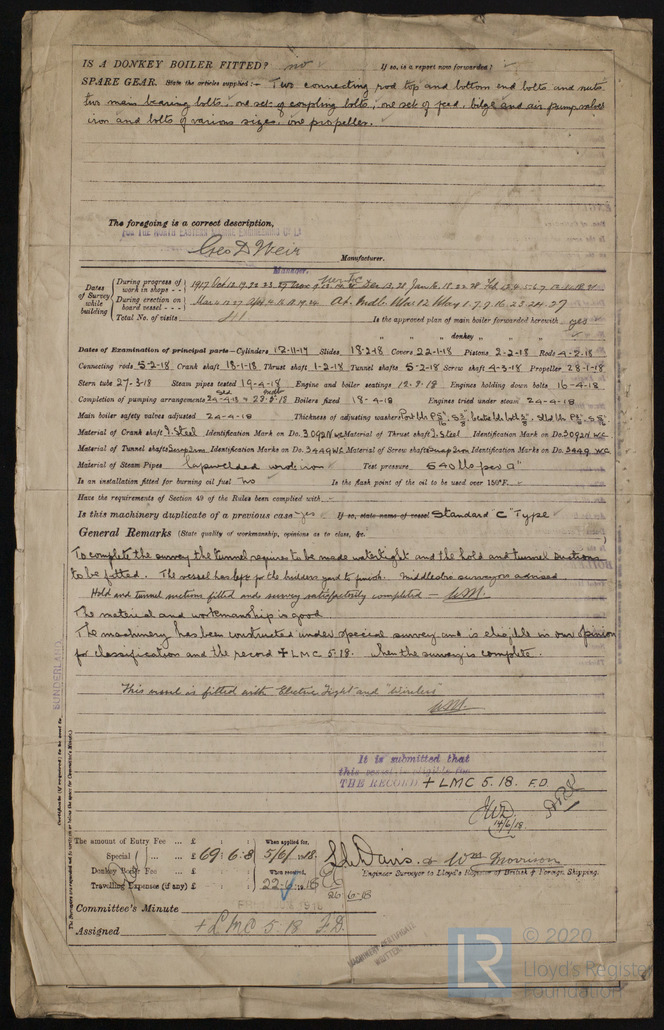 IS A DONKEY BOILER FITTED? no If so, is a report now forwarded?
SPARE GEAR. State the articles supplied:— Two connecting rod top and bottom end bolts and nuts
two main bearing bolts, one set of coupling bolts, one set of feed, bilge and air pump valves
iron and bolts of various sizes, one propeller.
The foregoing is a correct description,
FOR THE NORTH EASTERN MARINE ENGINEERING Co. Ld
Geo D Weir Manufacturer.
Manager.
Dates of Survey while building
During progress of work in shops - - 1917 Oct 12. 19. 22
During erection on board vessel - - -
Total No. of visits 41 Is the approved plan of main boiler forwarded herewith yes
" " " donkey " " "
Dates of Examination of principal parts—Cylinders 12-11-17 Slides 18-2-18 Covers 22-1-18 Pistons 2-2-18 Rods 4-2-18
Connecting rods 5-2-18 Crank shaft 18-1-18 Thrust shaft 1-2-18 Tunnel shafts 5-2-18 Screw shaft 4-3-18 Propeller 28-1-18
Stern tube 27-3-18 Steam pipes tested 19-4-18 Engine and boiler seatings 12-3-18 Engines holding down bolts 16-4-18
Completion of pumping arrangements Boilers fixed 18-4-18 Engines tried under steam 24-4-18
Main boiler safety valves adjusted 24-4-18 Thickness of adjusting washers
Material of Crank shaft I. Steel Identification Mark on Do. 3092N WC Material of Thrust shaft I. Steel Identification Mark on Do. 3092N WC
Material of Tunnel shafts Identification Marks on Do. 3449 WC Material of Screw shafts Identification Marks on Do. 3449 WC
Material of Steam Pipes Lapwelded wrot iron Test pressure 540 lbs per □"
Is an installation fitted for burning oil fuel no Is the flash point of the oil to be used over 150°F.
Have the requirements of Section 49 of the Rules been complied with
Is this machinery duplicate of a previous case yes If so, state name of vessel Standard "C" Type
General Remarks (State quality of workmanship, opinions as to class, &c.
To complete the survey the tunnel requires to be made watertight and the hold and tunnel suctions
to be fitted. The vessel has left for the builders yard to finish. Middlesbro surveyors advised.
Hold and tunnel suctions fitted and survey satisfactorily completed — WM.
The material and workmanship is good
The machinery has been constructed under special survey and is eligible in our opinion
for classification and the record + LMC 5.18. when the survey is complete.
This vessel is fitted with Electric Light and "Wireless"
WM
SUNDERLAND
Certificate (if required) to be sent to
It is submitted that
this vessel is eligible for
THE RECORD + LMC 5.18. F.D
14/6/18
The amount of Entry Fee ... £ : : When applied for,
Special ... ... £ 69 : 6 : 8 5/6/1918
Donkey Boiler Fee ... ... £ : : When received,
Travelling Expenses (if any) £ : : 22-6-1918
26-6-18
L. Davis. & Wm Morrison
Engineer Surveyor to Lloyd's Register of British & Foreign Shipping.
Committee's Minute
Assigned + LMC 5.18 F.D.
MACHINERY CERTIFICATE
WRITTEN
LR
© 2020
Lloyd's Register
Foundation